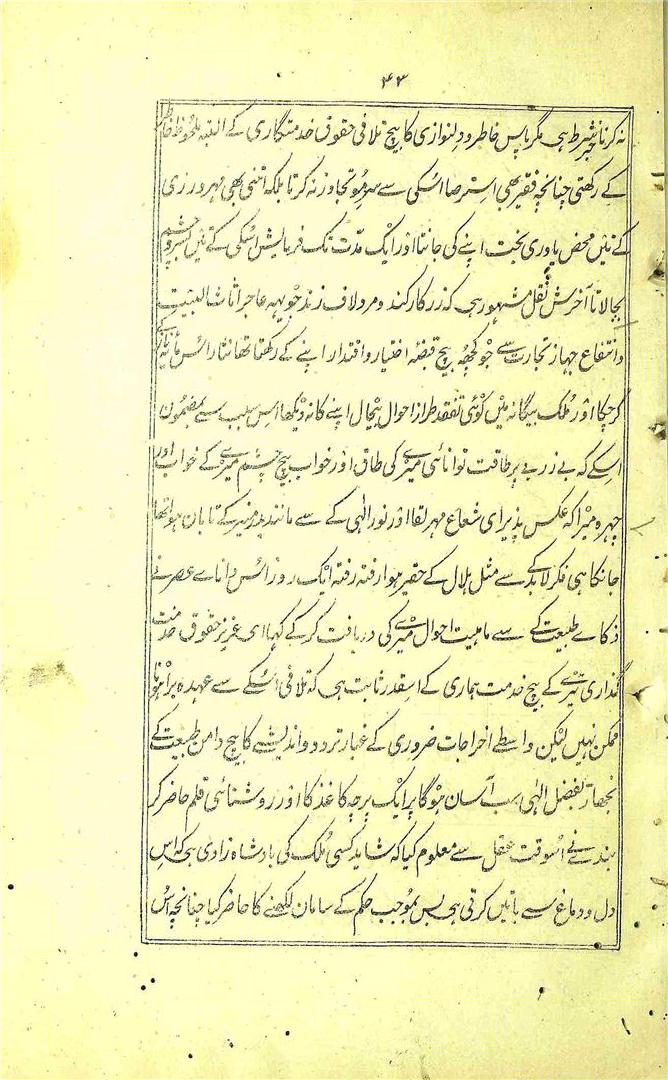 ۴۳
نہ کرنا شرط ہی مگر پاس خاطر و دلنوازی کا بیچ تلافی حقوق خدمتگاری کے البتہ ملحوظ خاطر
کے رکھتی چنانچہ فقیر بھی استرضا اُسکی سے سرمو تجاوز نہ کرتا بلکہ اتنی بھی مہرورزی
کے تئیں محض یاوری بخت اپنے کی جانتا اور ایک مدت تک فرمایش اُسکی کے تئیں بسروچشم
بجالاتا آخرش نقل مشہور ہی کہ زر کار کند و مرد لاف زند جو یہہ عاجز اثاث البیت
و انتفاع جہاز تجارت سے جو کچھ بیچ قبضہ اختیار و اقتدار اپنے کے رکھتا تھا نثار اُس مایہ ناز کے
کرچکا اور ملک بیگانہ میں کوئی تفقد طراز احوال پنچال اپنے کا نہ دیکھا اس سبب سے مضمون
اسکے کہ بے زر بے پر طاقت توانائی میری کی طاق اور خواب بیچ چشم میرے کے خواب اور
چہرہ میرا کہ عکس پذیرای شعاع مہر لقا اور نور الٰہی کے سے مانند بدر منیر کے تابان ہوا تھا
جانکاہی فکر لابد کے سے مثل ہلال کے حقیر ہوا رفتہ رفتہ ایک روز اُس دانائے عصر نے
ذکاے طبیعت کے سے ماہیت احوال میرے کی دریافت کرکے کہا ای عزیز حقوق خدمت
گذاری تیرے کے بیچ خدمت ہماری کے اسقدر ثابت ہی کہ تلافی اُسکے سے عہدہ برا ہونا
ممکن نہیں لیکن واسطے اخراجات ضروری کے غبار تردد و اندیشے کا بیچ دامن طبیعت کے
نچھاڑ بفضل الٰہی سب آسان ہوگا پر ایک پرچہ کاغذ کا اور روشنائی قلم حاضر کر
بندے نے اُسوقت عقل سے معلوم کیا کہ شاید کسی ملک کی بادشاہ زادی ہی کہ اس
دل و دماغ سے باتیں کرتی ہی بس بموجب حکم کے سامان لکھنے کا حاضر کیا چنانچہ اُس